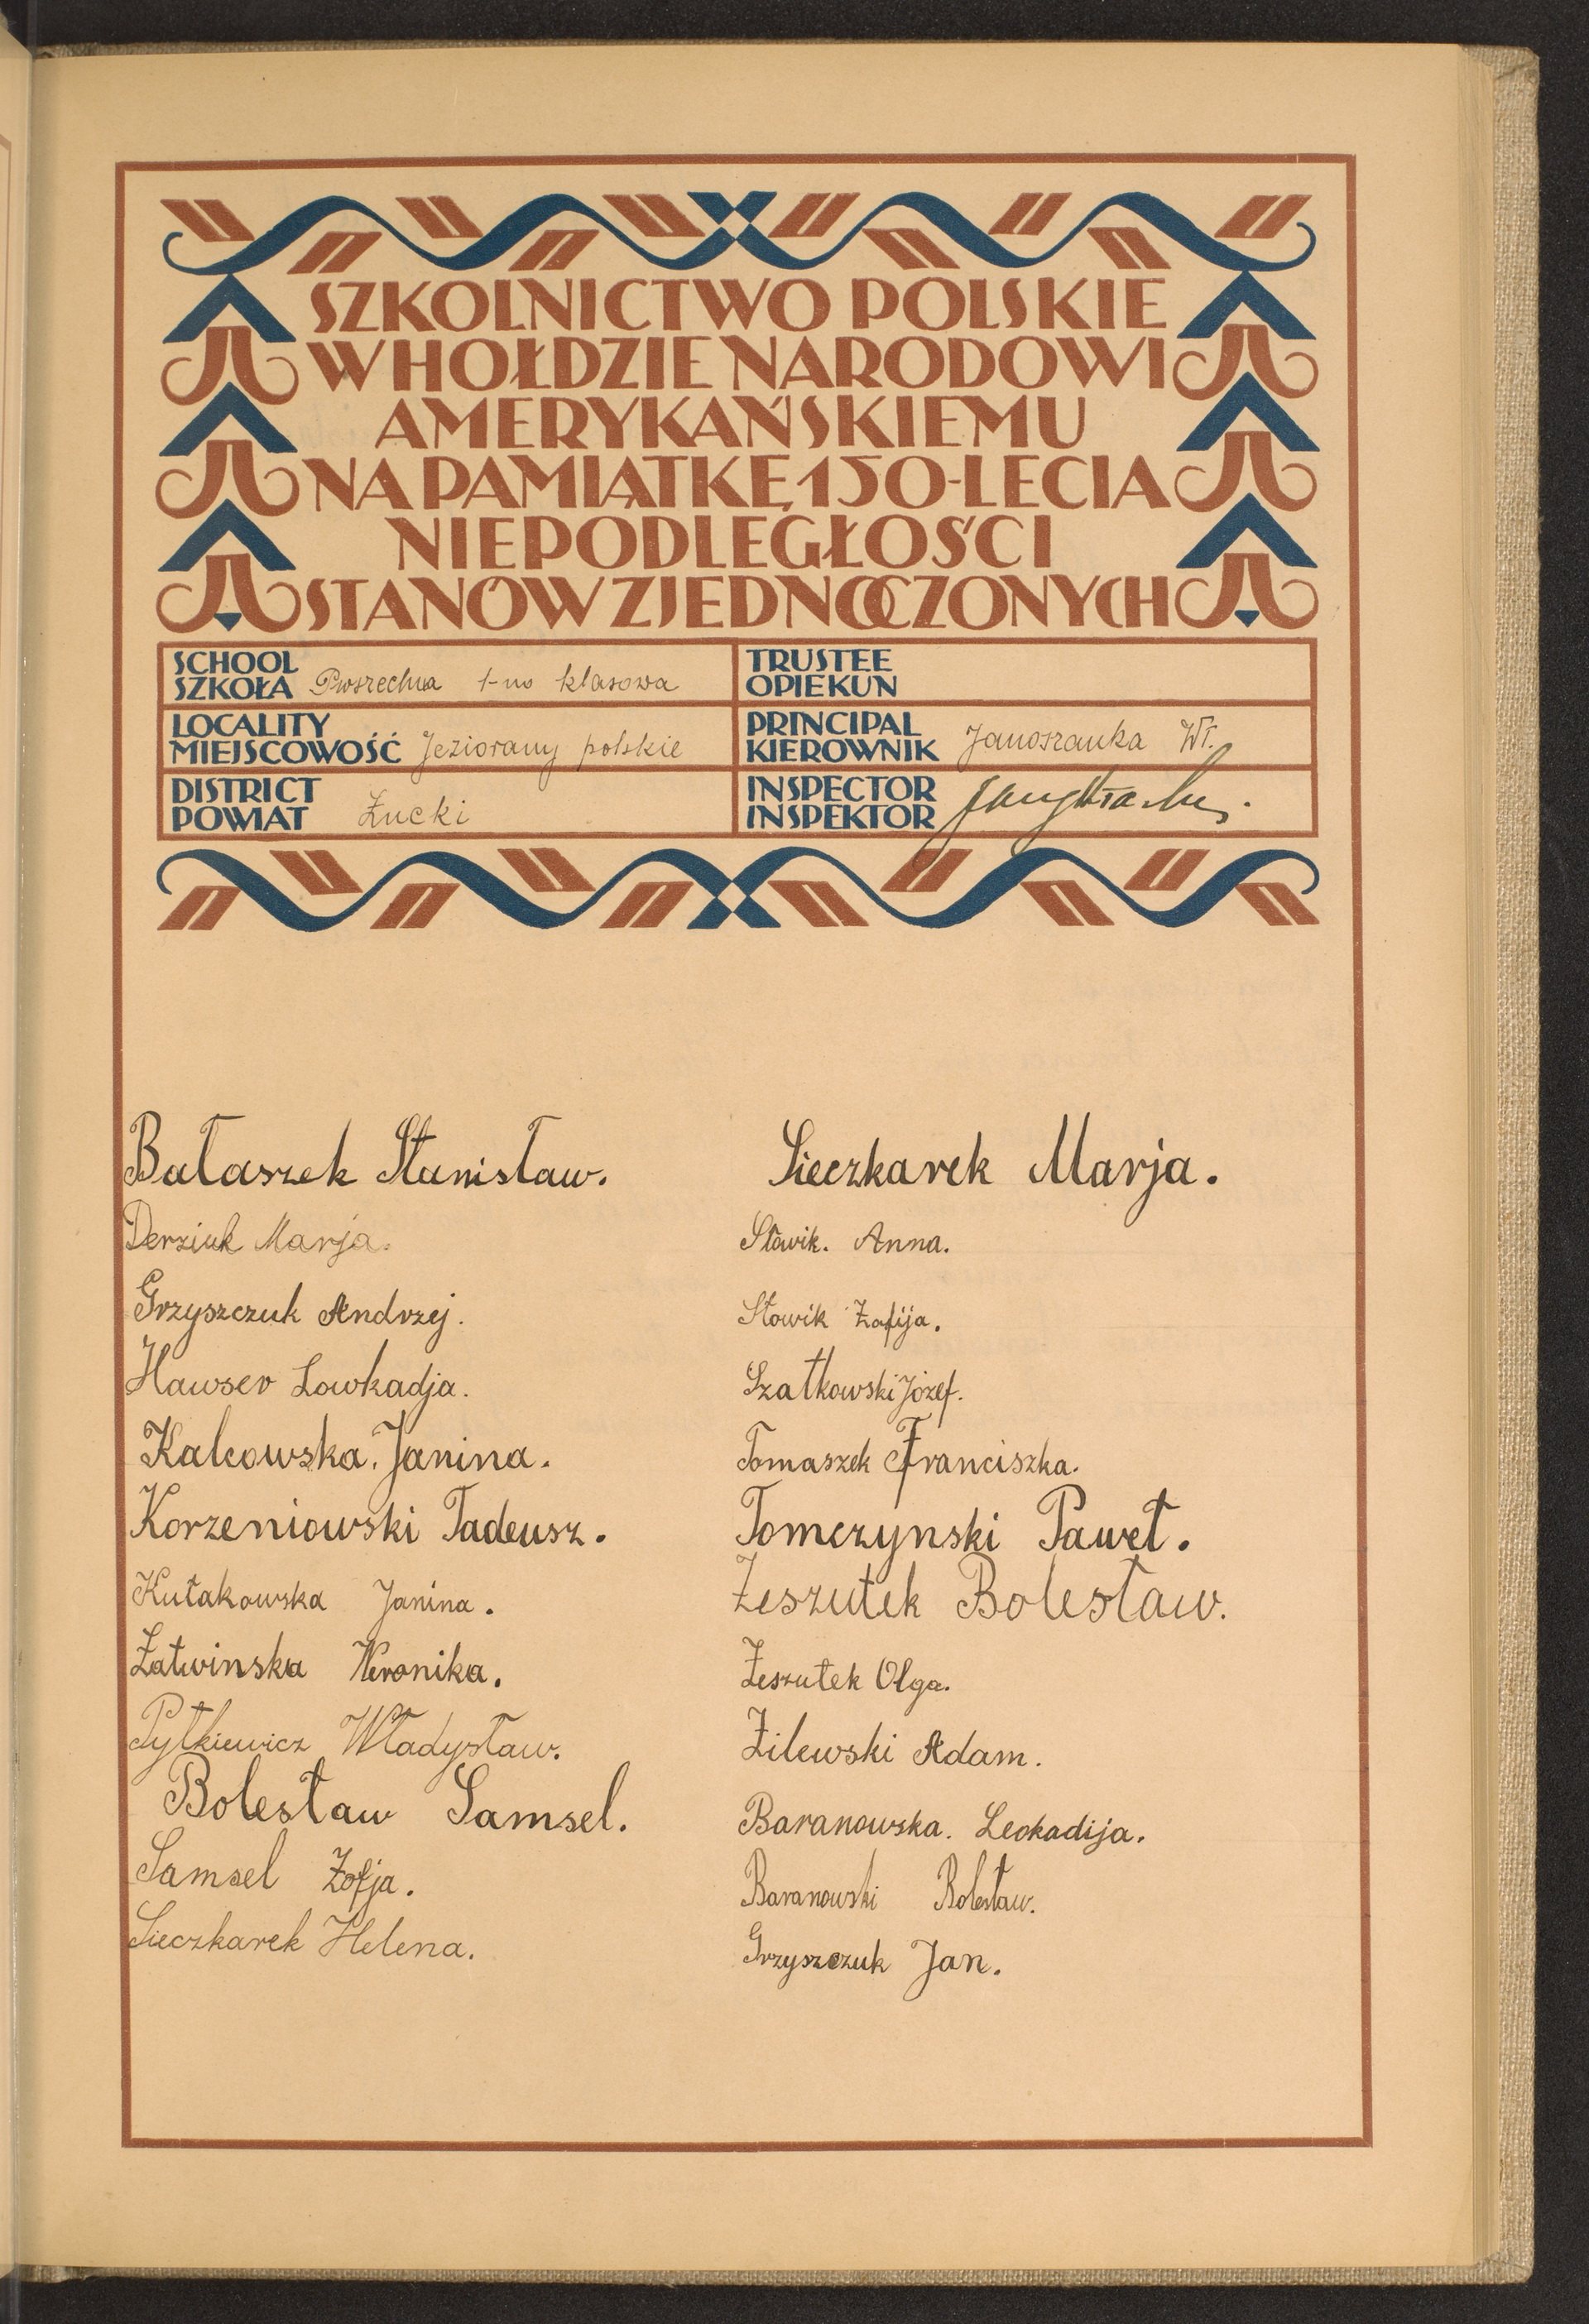 SZKOLNICTWO POLSKIE
W HOŁDZIE NARODOWI
AMERYKAŃSKIEMU
NA PAMIĄTKĘ 150-LECIA
NIEPODLEGŁOŚCI
STANÓW ZJEDNOCZONYCH
SCHOOL
SZKOŁA Pwszechna 1-no klasowa
TRUSTEE
OPIEKUN
LOCALITY
MIEJSCOWOŚĆ Jeziorany polskie
PRINCIPAL
KIEROWNIK Janoszanka Wł.
DISTRICT
POWIAT Łucki
INSPECTOR
INSPEKTOR
Bałaszek Stanisław.
Derziuk Marja.
Grzyszczuk Andrzej.
Hawser Lowkadja.
Kalcowska. Janina.
Korzeniowski Tadeusz.
Kułakowska Janina.
Łatwinska Weronika.
Pytkiewicz Władysław.
Bolesław Samsel.
Samsel Zofja.
Sieczkarek Helena.
Sieczkarek Marja.
Sławik. Anna.
Słowik Zofija.
Szatkowski Józef.
Tomaszek Franciszka.
Tomczynski Paweł.
Zeszutek Bolesław.
Zeszutek Olga.
Żilewski Adam.
Baranowska. Leokadija.
Baranowski Bolesław.
Grzyszczuk Jan.